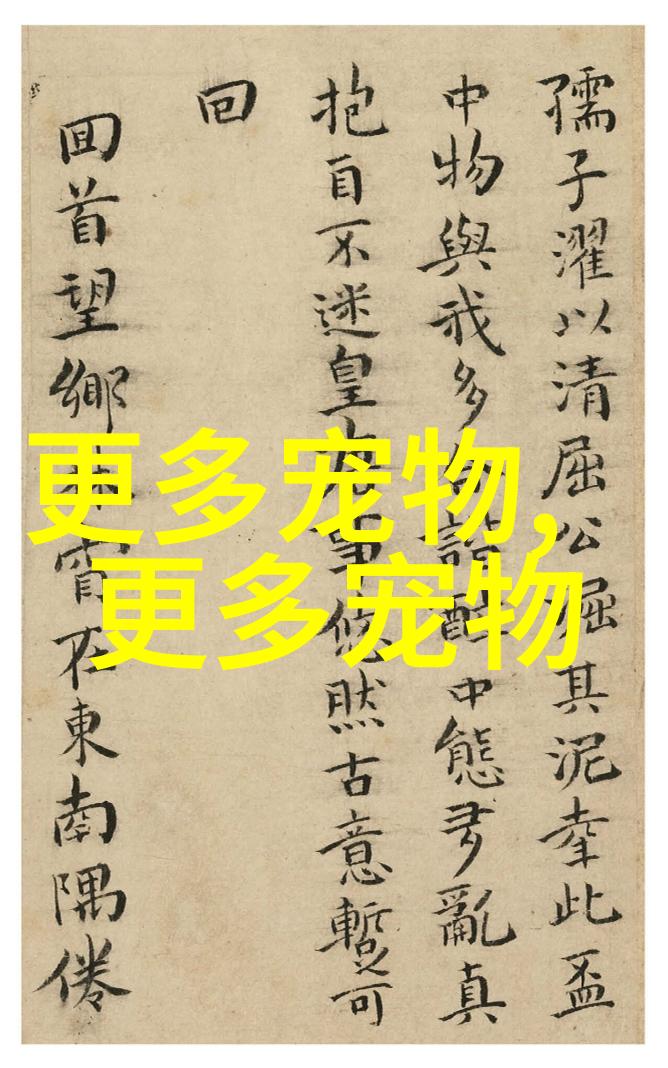 孺子濯以清屈公掘其泥幸此盃
中物與我多諧醉中態多亂真
抱自不迷皇事悠然古意暫可
回
回首望鄉宵在東南隅倦
更多宠物,
更多宠物